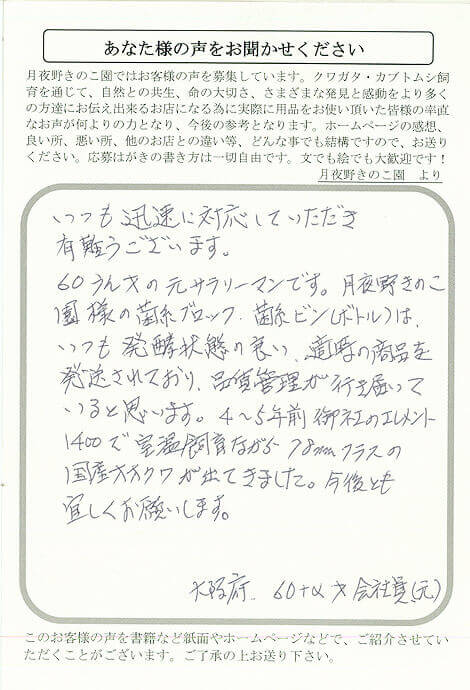 あなた様の声をお聞かせください
月夜野きのこ園ではお客様の声を募集しています。クワガタ・カブトムシ飼
育を通じて、自然との共生、命の大切さ、さまざまな発見と感動をより多く
の方達にお伝え出来るお店になる為に実際に用品をお使い頂いた皆様の率直
なお声が何よりの力となり、今後の参考となります。ホームページの感想、
良い所、悪い所、他のお店との違い等、どんな事でも結構ですので、お送り
ください。応募はがきの書き方は一切自由です。文でも絵でも大歓迎です！
月夜野きのこ園 より
いつも迅速に対応していただき
有難うございます。
60うん才の元サラリーマンです。月夜野きのこ
園様の菌糸ブロック、菌糸ビン(ボトル)は、
いつも発酵状態の良い、適時の商品を
発送されており、品質管理が行き届いて
いると思います。4〜5年前御社のエレメント
1400で室温飼育ながら78mmクラスの
国産オオクワが出てきました。今後とも
宜しくお願いします。
大阪府 60+α才 会社員(元)
このお客様の声を書籍など紙面やホームページなどで、ご紹介させてい
ただくことがございます。ご了承の上お送り下さい。